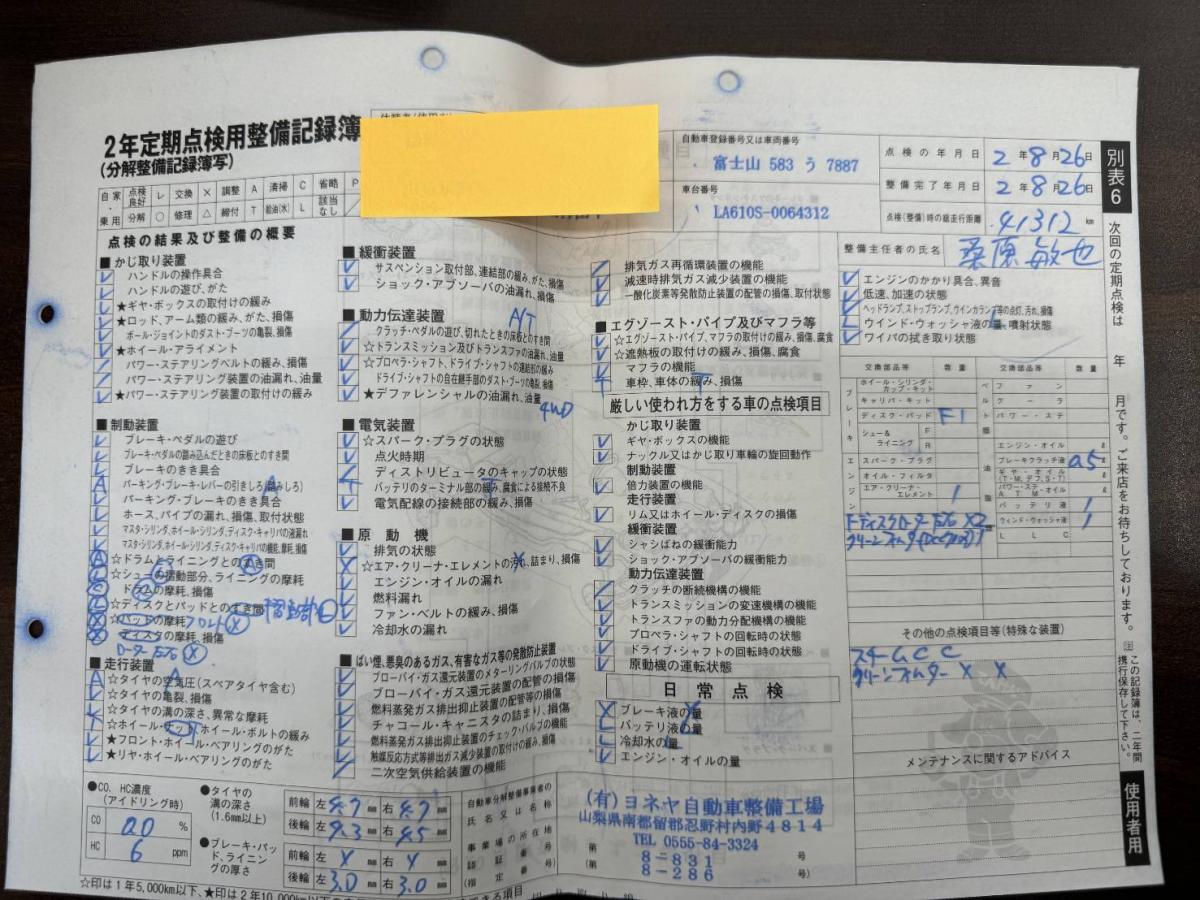 2年定期点検用整備記録簿
(分解整備記録簿写)
自動車登録番号又は車両番号
富士山 583 う 7887
車台番号
LA610S-0064312
点検の年月日 2年8月26日
整備完了年月日 2年8月26日
点検(整備)時の総走行距離 41312 km
整備主任者の氏名 桑原敏也
別表6
自家・乗用 点検良好 レ 交換 × 調整 A 清掃 C 省略 P
分解 ○ 修理 △ 締付 T 給油(水) L 該当なし /
点検の結果及び整備の概要
■かじ取り装置
ハンドルの操作具合
ハンドルの遊び、がた
★ギヤ・ボックスの取付けの緩み
★ロッド、アーム類の緩み、がた、損傷
ボール・ジョイントのダスト・ブーツの亀裂、損傷
★ホイール・アライメント
パワー・ステアリングベルトの緩み、損傷
パワー・ステアリング装置の油漏れ、油量
★パワー・ステアリング装置の取付けの緩み
■制動装置
ブレーキ・ペダルの遊び
ブレーキ・ペダルの踏み込んだときの床板とのすき間
ブレーキのきき具合
パーキング・ブレーキ・レバーの引きしろ(踏みしろ)
パーキング・ブレーキのきき具合
ホース、パイプの漏れ、損傷、取付状態
マスタ・シリンダ、ホイール・シリンダ、ディスク・キャリパの液漏れ
マスタ・シリンダ、ホイール・シリンダ、ディスク・キャリパの機能、摩耗、損傷
☆ドラムとライニングとのすき間
☆シューの摺動部分、ライニングの摩耗
ドラムの摩耗、損傷
☆ディスクとパッドとのすき間
☆パッドの摩耗 フロント ×
ディスクの摩耗、損傷
ローター 左右 ×
■走行装置
☆タイヤの空気圧(スペアタイヤ含む)
☆タイヤの亀裂、損傷
☆タイヤの溝の深さ、異常な摩耗
☆ホイール・ナット、ホイール・ボルトの緩み
★フロント・ホイール・ベアリングのがた
★リヤ・ホイール・ベアリングのがた
■緩衝装置
サスペンション取付部、連結部の緩み、がた、損傷
ショック・アブソーバの油漏れ、損傷
■動力伝達装置 A/T
クラッチ・ペダルの遊び、切れたときの床板とのすき間
☆トランスミッション及びトランスファの油漏れ、油量
☆プロペラ・シャフト、ドライブ・シャフトの連結部の緩み
ドライブ・シャフトの自在継手部のダスト・ブーツの亀裂、損傷
★デファレンシャルの油漏れ、油量
4WD
■電気装置
☆スパーク・プラグの状態
点火時期
ディストリビュータのキャップの状態
バッテリのターミナル部の緩み、腐食による接続不良
電気配線の接続部の緩み、損傷
■原動機
排気の状態
☆エア・クリーナ・エレメントの汚れ、詰まり、損傷
エンジン・オイルの漏れ
燃料漏れ
ファン・ベルトの緩み、損傷
冷却水の漏れ
■ばい煙、悪臭のあるガス、有害なガス等の発散防止装置
ブローバイ・ガス還元装置のメターリングバルブの状態
ブローバイ・ガス還元装置の配管の損傷
燃料蒸発ガス排出抑止装置の配管等の損傷
チャコール・キャニスタの詰まり、損傷
燃料蒸発ガス排出抑止装置のチェックバルブの機能
触媒反応方式等排出ガス減少装置の取付けの緩み、損傷
二次空気供給装置の機能
排気ガス再循環装置の機能
減速時排気ガス減少装置の機能
一酸化炭素等発散防止装置の配管の損傷、取付状態
■エグゾースト・パイプ及びマフラ等
☆エグゾースト・パイプ、マフラの取付けの緩み、損傷、腐食
☆遮熱板の取付けの緩み、損傷、腐食
マフラの機能
車枠、車体の緩み、損傷
厳しい使われ方をする車の点検項目
かじ取り装置
ギヤ・ボックスの機能
ナックル又はかじ取り車輪の旋回動作
制動装置
倍力装置の機能
走行装置
リム又はホイール・ディスクの損傷
緩衝装置
シャシばねの緩衝能力
ショック・アブソーバの緩衝能力
動力伝達装置
クラッチの断続機構の機能
トランスミッションの変速機構の機能
トランスファの動力分配機構の機能
プロペラ・シャフトの回転時の状態
ドライブ・シャフトの回転時の状態
原動機の運転状態
日常点検
ブレーキ液の量
バッテリ液の量
冷却水の量
エンジン・オイルの量
エンジンのかかり具合、異音
低速、加速の状態
ヘッドランプ、ストップランプ、ウインカランプ等の点灯、汚れ、損傷
ウインド・ウォッシャ液の量、噴射状態
ワイパの拭き取り状態
交換部品等 数量 交換部品等 数量
ブレーキ ホイール・シリンダ・カップ・キット ベルト類 ファン
キャリパ・キット クーラ
ディスク・パッド F1 パワー・ステ
シュー&ライニング F
R エンジン・オイル ℓ
エンジン スパーク・プラグ 油脂類 ブレーキクラッチ液 0.5 ℓ
オイル・フィルタ ギヤ・オイル(T・M、デフ、S・T) ℓ
エア・クリーナ・エレメント 1 パワー・ステATM・オイル ℓ
バッテリ液 1
Fディスクローター 左右 ×2 ウィンド・ウォッシャ液 1
LLC
その他の点検項目等(特殊な装置)
スチームCC
クリーンフィルター × ×
メンテナンスに関するアドバイス
次回の定期点検は 年 月です。ご来店をお待ちしております。
注 この記録簿は、二年間携行保存して下さい。
使用者用
●CO、HC濃度(アイドリング時)
CO 0.0 %
HC 6 ppm
●タイヤの溝の深さ(1.6mm以上)
前輪 左 4.7 mm 右 4.7 mm
後輪 左 4.3 mm 右 4.5 mm
●ブレーキ・パッド、ライニングの厚さ
前輪 左 × mm 右 × mm
後輪 左 3.0 mm 右 3.0 mm
自動車分解整備事業者の氏名又は名称
事業場の所在地
認証番号
(指定番号)
(有)ヨネヤ自動車整備工場
山梨県南都留郡忍野村内野4814
TEL 0555-84-3324
第 8-831 号
(第 8-286 号)
☆印は1年5,000km以下、★印は2年10,000km以下の